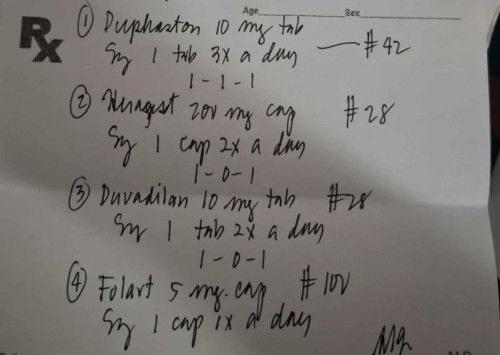 Age Sex
Rx
① Duphaston 10 mg tab
Sig 1 tab 3x a day #42
1 - 1 - 1
② Heragest 200 mg cap #28
Sig 1 cap 2x a day
1 - 0 - 1
③ Duvadilan 10 mg tab #28
Sig 1 tab 2x a day
1 - 0 - 1
④ Folart 5 mg. cap #100
Sig 1 cap 1x a day